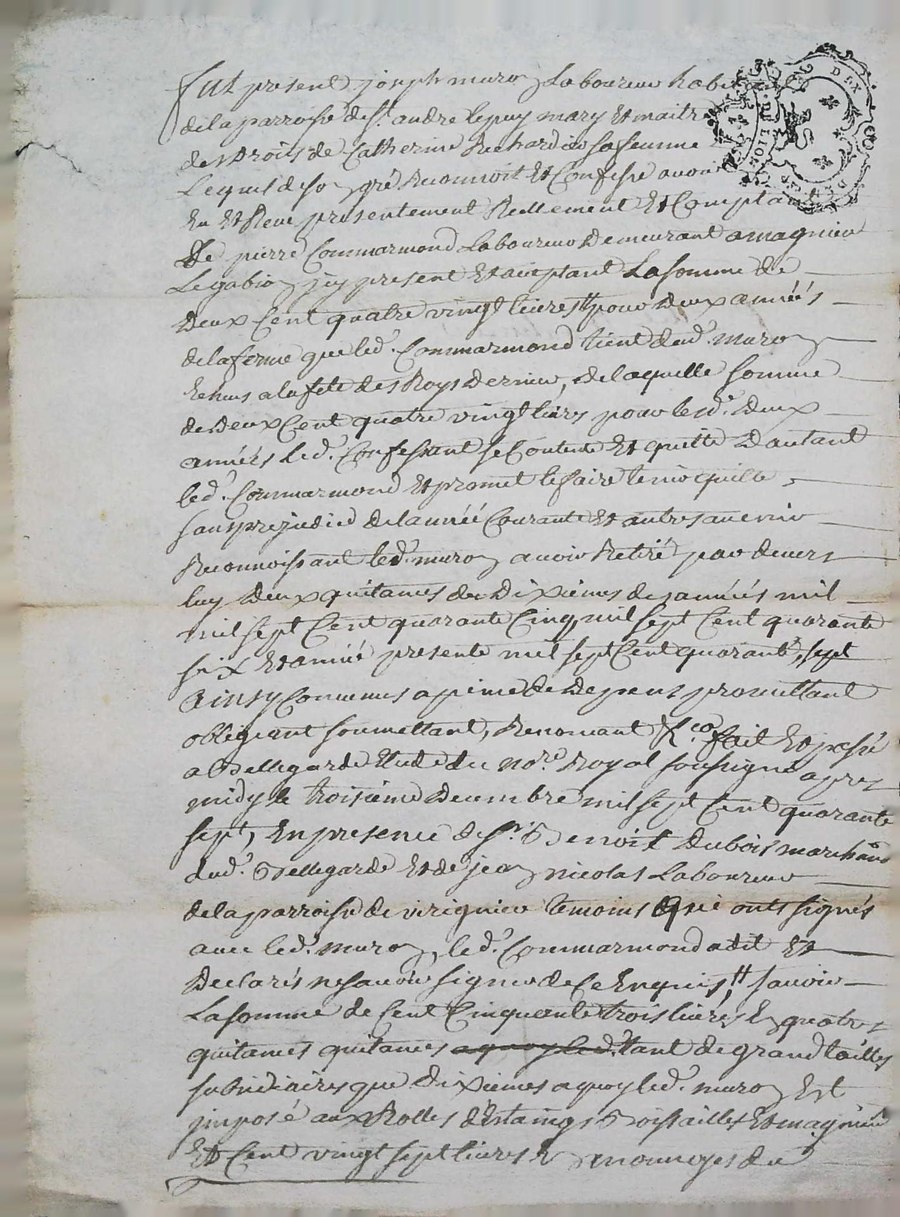 Fut present joseph muron Laboureur habi
de la parroisse de St. andre le puy mary Et maitre
des Droits de Catherine Rechardier sa femme
Lequel de son gré Reconnoit Et Confesse avoir
Eu Et Receu presentement Reellement Et Comptant
De pierre Commarmond Laboureur Demeurant a magnieu
Le gabion jcy present Et acceptant La somme de
deux Cent quatre vingt livres pour deux années
de la ferme que led. Commarmond tient dud. muron
Echus a la fete des Roys dernier, de laquelle somme
de deux Cent quatre vingt livres pour lesd. deux
années led. Confessant se Contente Et quitte D'autant
led. Commarmond Et promet le faire tenir quitte
sans prejudice de lannée Courante Et autres a venir
Reconnoissant led. muron avoir Retiré par devers
luy deux quitances des Dixièmes des années mil
mil sept Cent quarante Cinq, mil sept Cent quarante
six Et année presente mil sept Cent quarante, sept
Ainsy Convenus a peine de Depens promettant
obligeant soumettant, Renonçant &ca. fait Et passé
a Bellegarde Etude du nore. Royal soussigné apres
midy le troisième Decembre mil sept Cent quarante
sept, En presence de sr. Benoit Dubois marchand
dud. Bellegarde Et de jean nicolas Laboureur
de la parroisse de virignieu temoins Qui onts signés
avec led. muron, led. Commarmond a dit Et
Declarés ne savoir signer de Ce Enquis, savoir
La somme de Cent Cinquante trois livres En quatre
quitances quitances a quoy led. tant de grand tailles
subsidiaires que Dixièmes a quoy led. muron Est
jmposé aux Rolles d'Estaings Boisailles Et magnieu
Et Cent vingt sept livres En monnoyes du